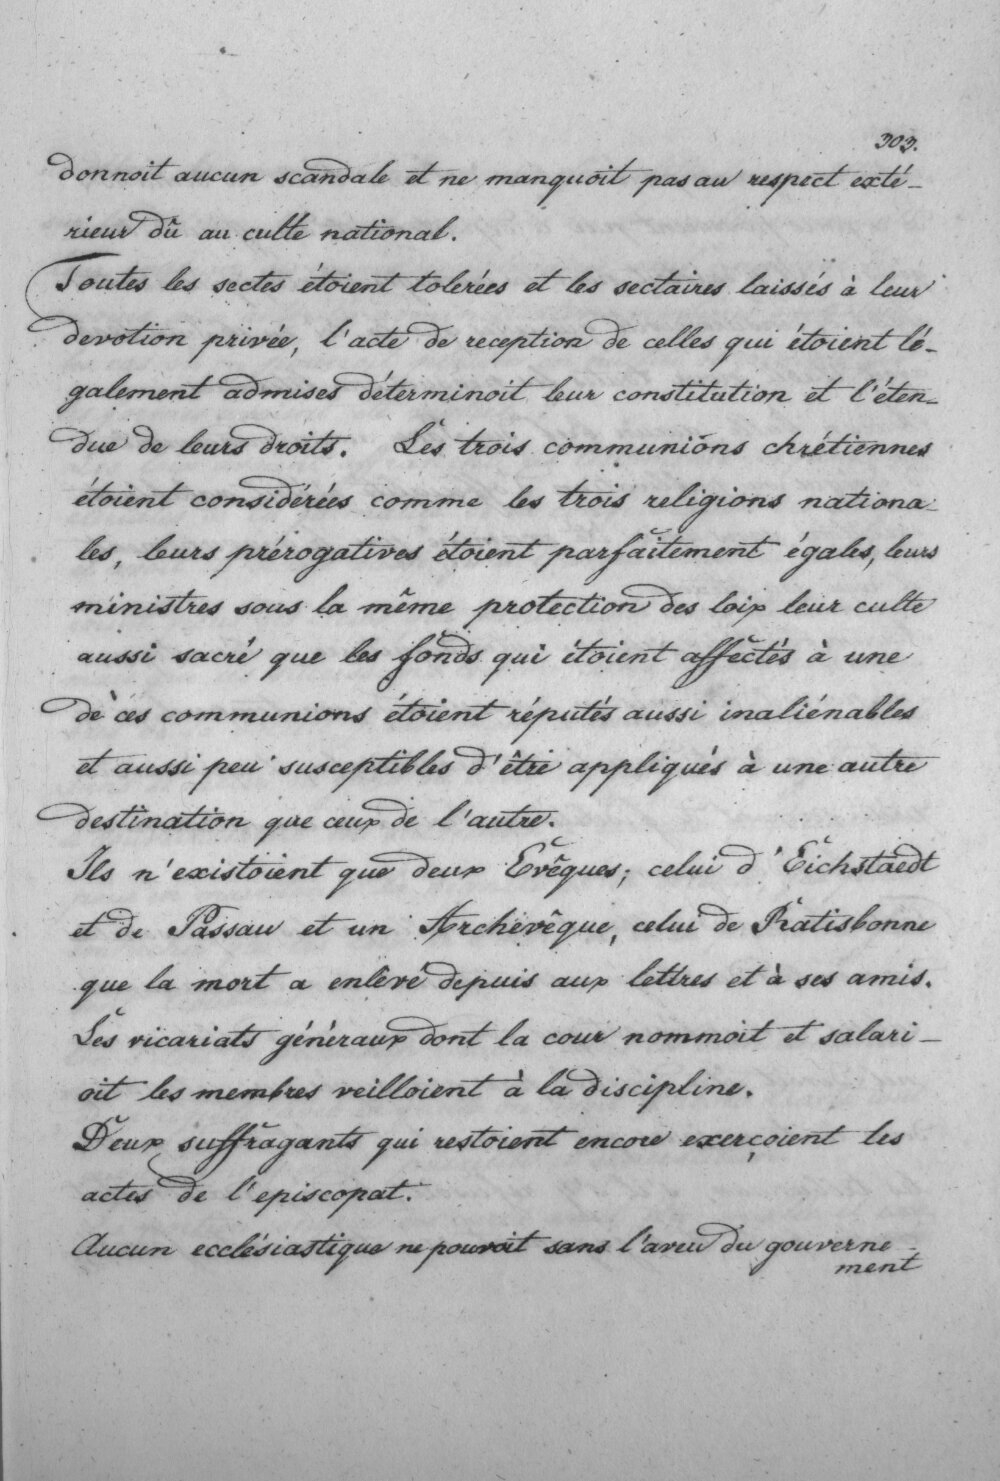 303.
donnoit aucun scandale et ne manquoit pas au respect exté-
rieur dû au culte national.
Toutes les sectes étoient tolerées et les sectaires laissés à leur
devotion privée, l'acte de reception de celles qui étoient lé-
galement admises déterminoit leur constitution et l'éten-
due de leurs droits. Les trois communions chrétiennes
étoient considérées comme les trois religions nationa-
les, leurs prérogatives étoient parfaitement égales, leurs
ministres sous la même protection des loix leur culte
aussi sacré que les fonds qui étoient affectés à une
de ces communions étoient réputés aussi inaliénables
et aussi peu susceptibles d'être appliqués à une autre
destination que ceux de l'autre.
Ils n'existoient que deux Evêques; celui d'Eichstaedt
et de Passau et un Archevêque, celui de Ratisbonne
que la mort a enlevé depuis aux lettres et à ses amis.
Les vicariats généraux dont la cour nommoit et salari-
oit les membres veilloient à la discipline.
Deux suffragants qui restoient encore exerçoient les
actes de l'episcopat.
Aucun ecclésiastique ne pouvoit sans l'aveu du gouverne-
ment